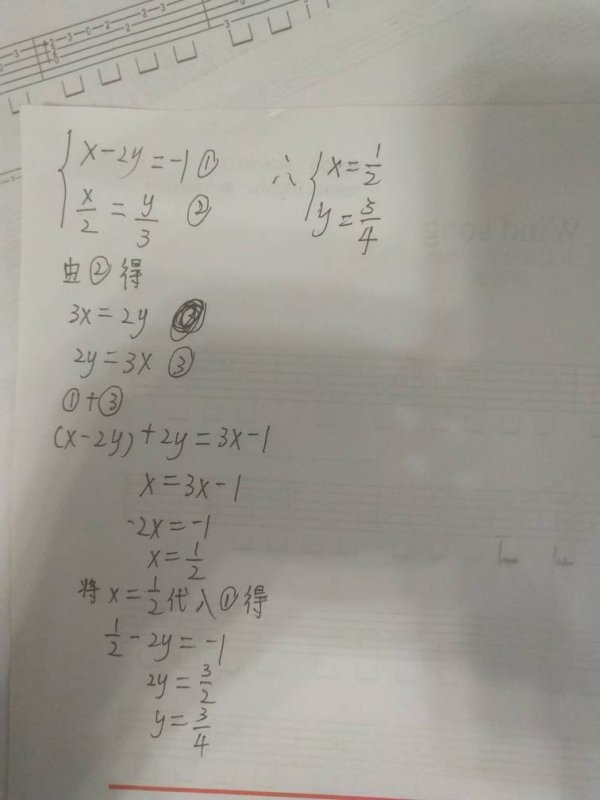 x-2y=-1①
x/2=y/3 ②
由②得
3x=2y
2y=3x ③
①+③
(x-2y)+2y=3x-1
x=3x-1
-2x=-1
x=1/2
将x=1/2代入①得
1/2-2y=-1
2y=3/2
y=3/4
∴{x=1/2
y=3/4